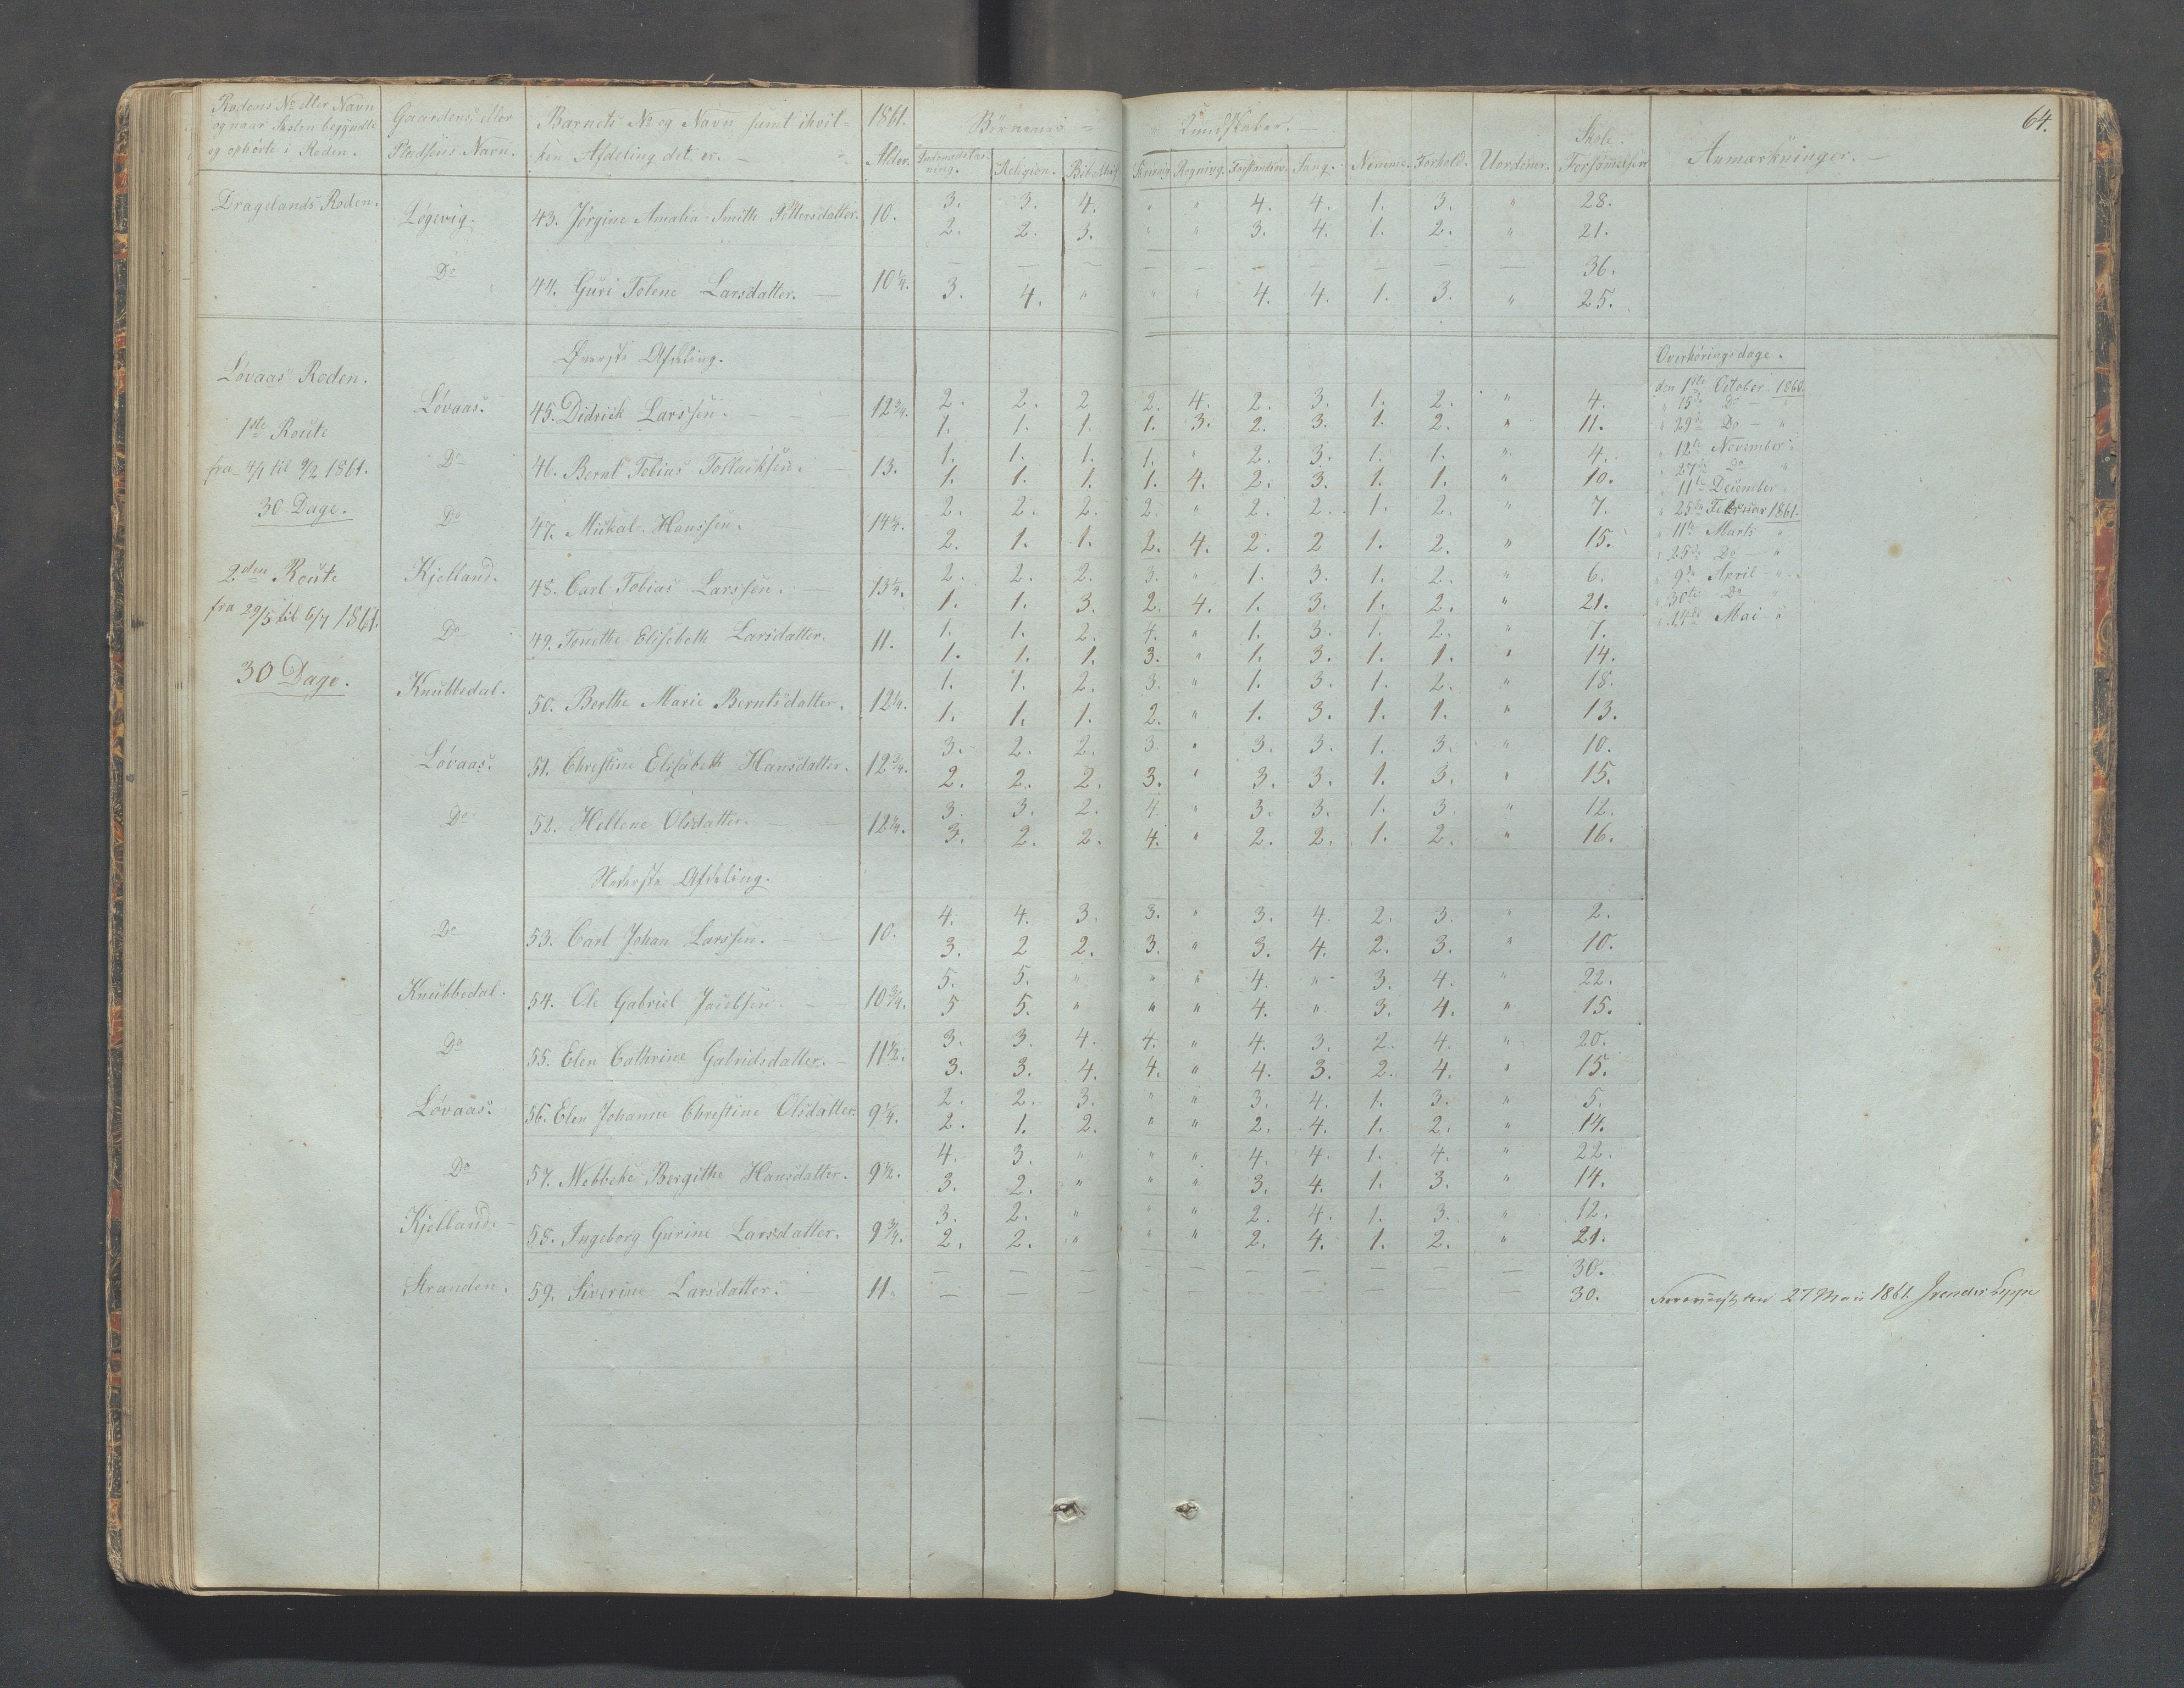 64.
Rodens No eller Navn og naar Skolen begyndte og ophørte i Roden. Gaardens eller Pladsens Navn. Barnets No og Navn samt ihvilken Afdeling det er. 1861. Alder. Børnenes Kundskaber. Religion. Skrivning Regning. Forstandsøv. Sang. Nemme. Forhold. Uordener. Skole-Forsømmelser Anmærkninger.
Dragelands Roden.
Løgevig. 43. Jørgine Amalia Smith Pettersdatter. 10. 3. 3. 4. " " 4. 4. 1. 3. " 28.
2. 2. 3. " " 3. 4. 1. 2. " 21.
— — — — — — — — — — 36.
Do 44. Guri Tolene Larsdatter. 10 1/4. 3. 4. " " " 4. 4. 1. 3. " 25.
Øverste Afdeling.
Løvaas Roden.
1ste Route
fra 4/1 til 9/2 1861.
30 Dage.
2den Route
fra 29/5 til 6/7 1861.
30 Dage.
Løvaas. 45. Didrick Larssen. 12 3/4. 2. 2. 2 2. 4. 2. 3. 1. 2. " 4.
1. 1. 1. 1. 3. 2. 3. 1. 2. " 11.
Do 46. Bernt Tobias Tollaksen. 13. 1. 1. 1. 1. " 2. 3. 1. 1. " 4.
1. 1. 1. 1. 4. 2. 3. 1. 1. " 10.
Do 47. Mickal Hanssen. 14 1/4. 2. 2. 2. 2. " 2. 2. 1. 2. " 7.
2. 1. 1. 2. 4. 2. 2 1. 2. " 15.
Kjelland. 48. Carl Tobias Larssen. 13 1/4. 2. 2. 2. 3. " 1. 3. 1. 2. " 6.
1. 1. 3. 2. 4. 1. 3. 1. 2. " 21.
Do 49. Tonethe Elisabeth Larsdatter. 11. 1. 1. 2. 4. " 1. 3. 1. 2. " 7.
1. 1. 1. 3. " 1. 3. 1. 1. " 14.
Knubbedal. 50. Berthe Marie Berntsdatter. 12 1/4. 1. 1. 2. 3. " 1. 3. 1. 2. " 18.
1. 1. 1. 2. " 1. 3. 1. 1. " 13.
Løvaas. 51. Christine Elisabeth Hansdatter. 12 3/4. 3. 2. 2. 3. " 3. 3. 1. 3. " 10.
2. 2. 2. 3. " 3. 3. 1. 3. " 15.
Do 52. Hellene Olsdatter. 12 1/4. 3. 3. 2. 4. " 3. 3. 1. 3. " 12.
3. 2. 2. 4. " 2. 2. 1. 2. " 16.
Nederste Afdeling.
Do 53. Carl Johan Larssen. 10. 4. 4. 3. 3. " 3. 4. 2. 3. " 2.
3. 2 2. 3. " 3. 4. 2. 3. " 10.
Knubbedal. 54. Ole Gabriel Jacobsen. 10 3/4. 5. 5. " " " 4. " 3. 4. " 22.
5 5. " " " 4. " 3. 4. " 15.
Do 55. Elen Cathrine Gabrielsdatter. 11 1/2. 3. 3. 4. 4. " 4. 3. 2. 4. " 20.
3. 3. 4. 4. " 4. 3. 2. 4. " 15.
Løvaas. 56. Elen Johanne Christine Olsdatter. 9 1/4. 2. 2. 3. " " 3. 4. 1. 3. " 5.
2. 1. 2. " " 2. 4. 1. 2. " 14.
Do 57. Mebbeke Bergithe Hansdatter. 9 1/2. 4. 3. " " " 4. 4. 1. 4. " 22.
3. 2. " " " 3. 4. 1. 3. " 14.
Kjelland. 58. Ingeborg Gurine Larsdatter. 9 3/4. 3. 2. " " " 2. 4. 1. 3. " 12.
2. 2. " " " 2. 4. 1. 2. " 21.
— — — — — — — — — 30.
Stranden. 59. Siverine Larsdatter. 11. — — — — — — — — — 30.
Overhøringsdage.
den 1ste October 1860.
" 15de Do "
" 29de Do "
" 12te November "
" 27de Do "
" 11te December "
" 25de Februar 1861.
" 11te Marts "
" 25de Do "
" 9de April "
" 30te Do "
" 14de Mai "
27 Mai 1861.